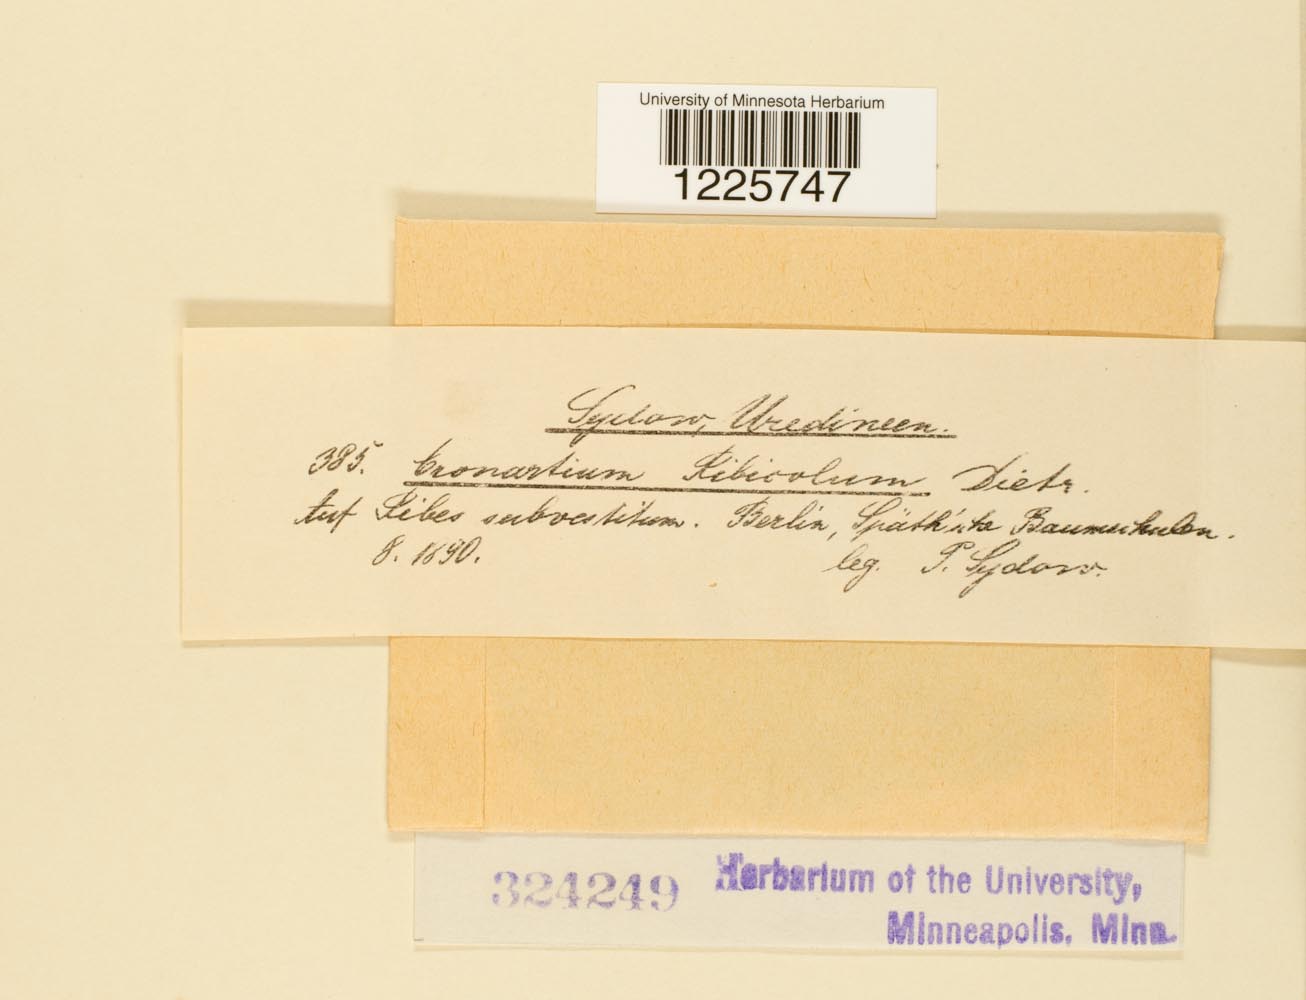 University of Minnesota Herbarium
1225747
Sydow, Uredineen.
385. Cronartium Ribicolum Dietr.
Auf Ribes subvestitum. Berlin, Späth'sche Baumschulen.
8. 1890.
leg. P. Sydow.
324249
Herbarium of the University,
Minneapolis, Minn.